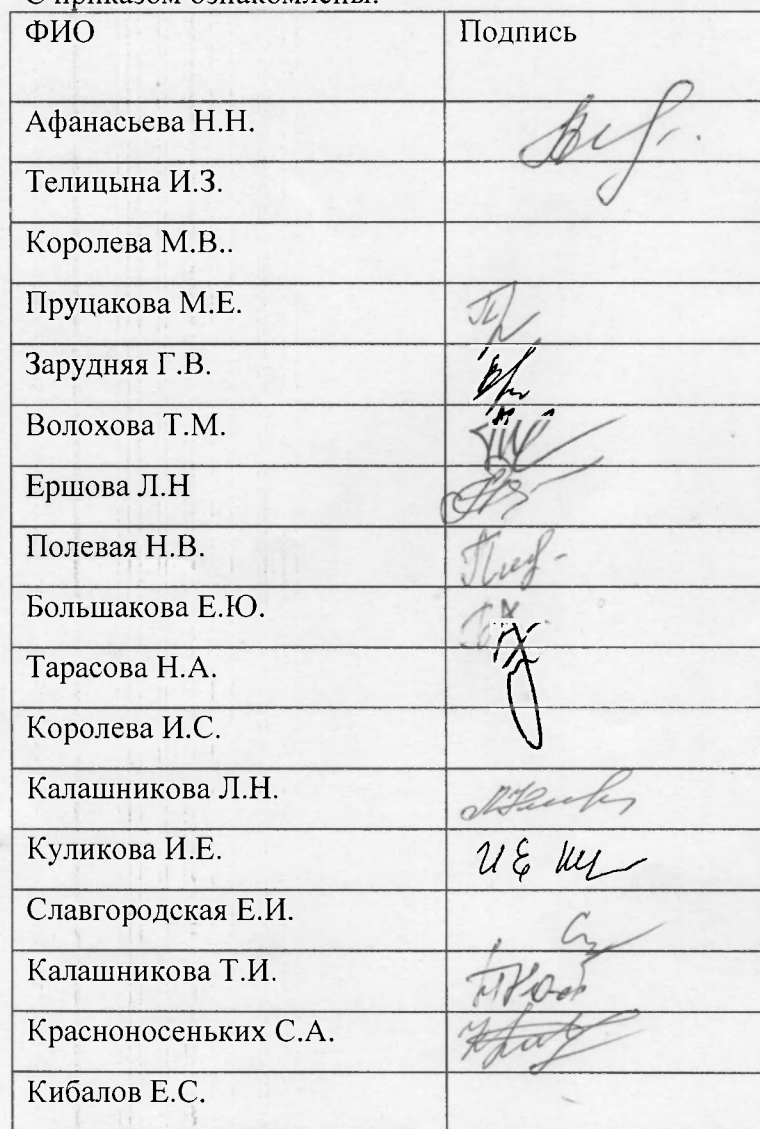 С приказом ознакомлены:
ФИО Подпись
Афанасьева Н.Н.
Телицына И.З.
Королева М.В..
Пруцакова М.Е.
Зарудняя Г.В.
Волохова Т.М.
Ершова Л.Н
Полевая Н.В.
Большакова Е.Ю.
Тарасова Н.А.
Королева И.С.
Калашникова Л.Н.
Куликова И.Е.
Славгородская Е.И.
Калашникова Т.И.
Красноносеньких С.А.
Кибалов Е.С.